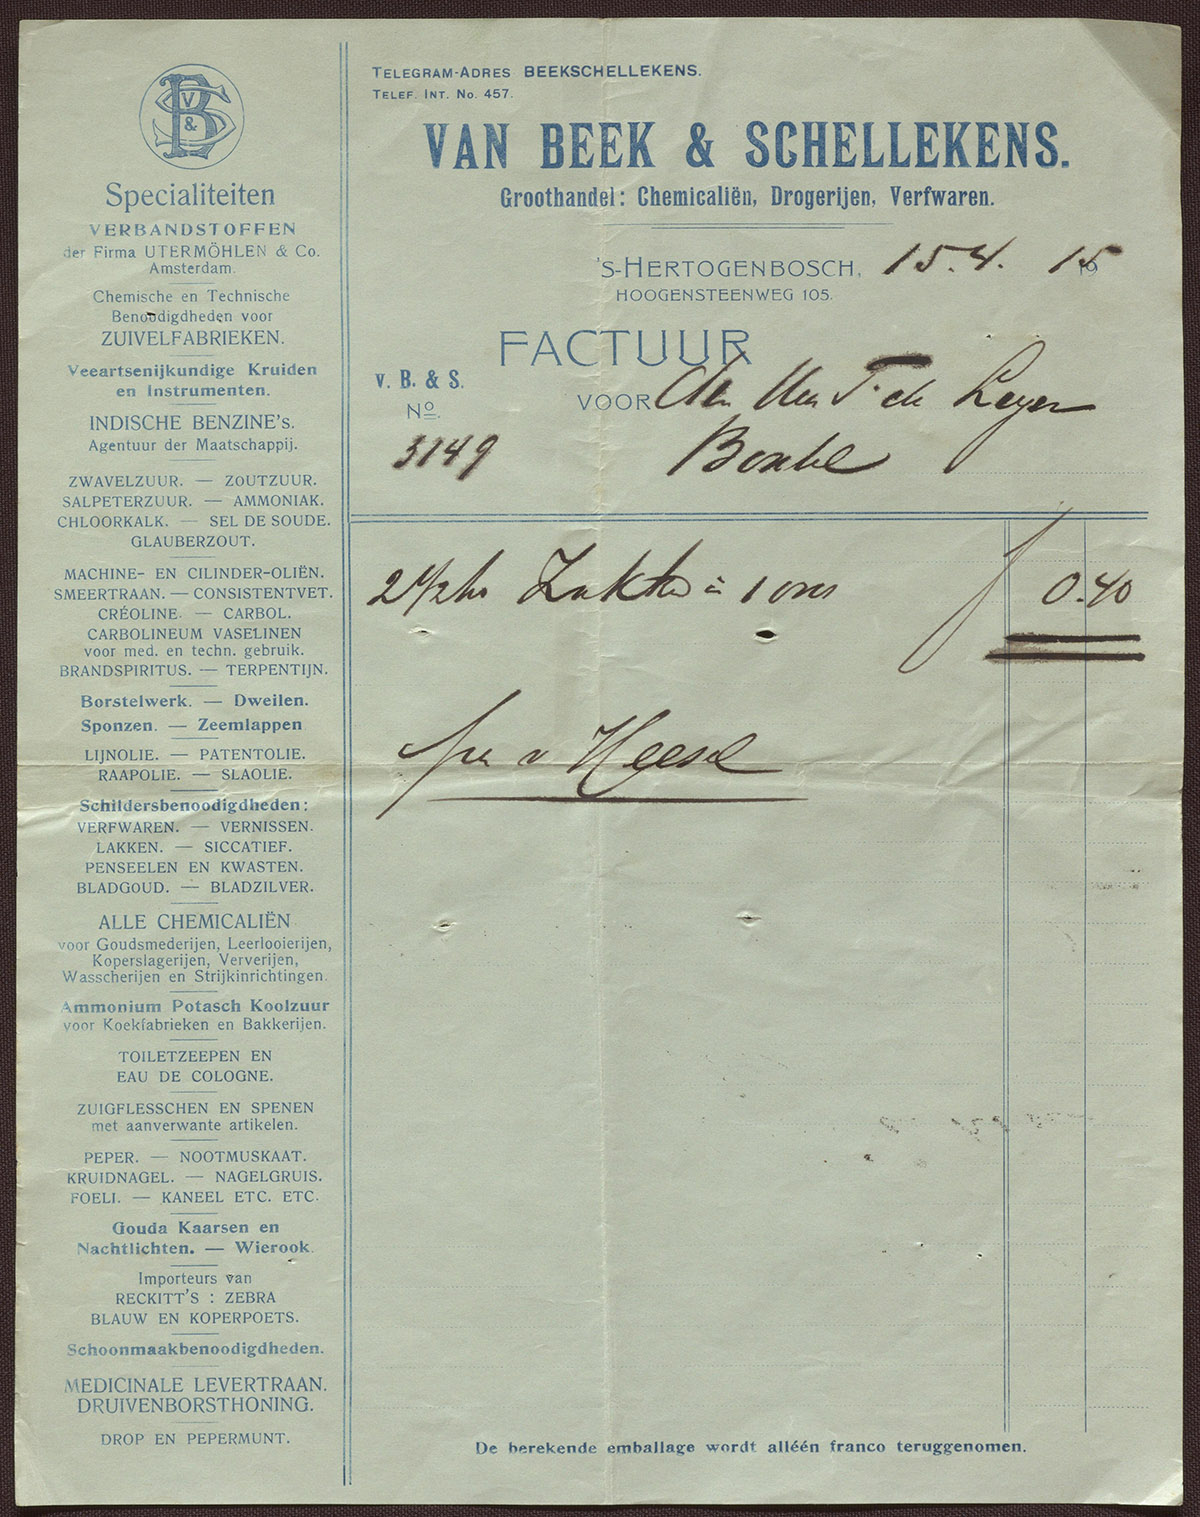 V
B S
&
Specialiteiten
VERBANDSTOFFEN
der Firma UTERMÖHLEN & Co.
Amsterdam.
Chemische en Technische
Benoodigdheden voor
ZUIVELFABRIEKEN.
Veeartsenijkundige Kruiden
en Instrumenten.
INDISCHE BENZINE's.
Agentuur der Maatschappij.
ZWAVELZUUR. — ZOUTZUUR.
SALPETERZUUR. — AMMONIAK.
CHLOORKALK. — SEL DE SOUDE.
GLAUBERZOUT.
MACHINE- EN CILINDER-OLIËN.
SMEERTRAAN. — CONSISTENTVET.
CRÉOLINE. — CARBOL.
CARBOLINEUM VASELINEN
voor med. en techn. gebruik.
BRANDSPIRITUS. — TERPENTIJN.
Borstelwerk. — Dweilen.
Sponzen. — Zeemlappen
LIJNOLIE. — PATENTOLIE.
RAAPOLIE. — SLAOLIE.
Schildersbenoodigdheden:
VERFWAREN. — VERNISSEN.
LAKKEN. — SICCATIEF.
PENSEELEN EN KWASTEN.
BLADGOUD. — BLADZILVER.
ALLE CHEMICALIËN
voor Goudsmederijen, Leerlooierijen,
Koperslagerijen, Ververijen,
Wasscherijen en Strijkinrichtingen.
Ammonium Potasch Koolzuur
voor Koekfabrieken en Bakkerijen.
TOILETZEEPEN EN
EAU DE COLOGNE.
ZUIGFLESSCHEN EN SPENEN
met aanverwante artikelen.
PEPER. — NOOTMUSKAAT.
KRUIDNAGEL. — NAGELGRUIS.
FOELI. — KANEEL ETC. ETC.
Gouda Kaarsen en
Nachtlichten. — Wierook.
Importeurs van
RECKITT'S : ZEBRA
BLAUW EN KOPERPOETS.
Schoonmaakbenoodigdheden.
MEDICINALE LEVERTRAAN.
DRUIVENBORSTHONING.
DROP EN PEPERMUNT.
TELEGRAM-ADRES BEEKSCHELLEKENS.
TELEF. INT. No. 457.
VAN BEEK & SCHELLEKENS.
Groothandel: Chemicaliën, Drogerijen, Verfwaren.
'S-HERTOGENBOSCH, 15.4. 1915
HOOGENSTEENWEG 105.
FACTUUR
v. B. & S.
VOOR den Heer F. de Leyer
No.
3149
Boxtel
2 à 1 ons f 0.40
v Heesel
De berekende emballage wordt alléén franco teruggenomen.